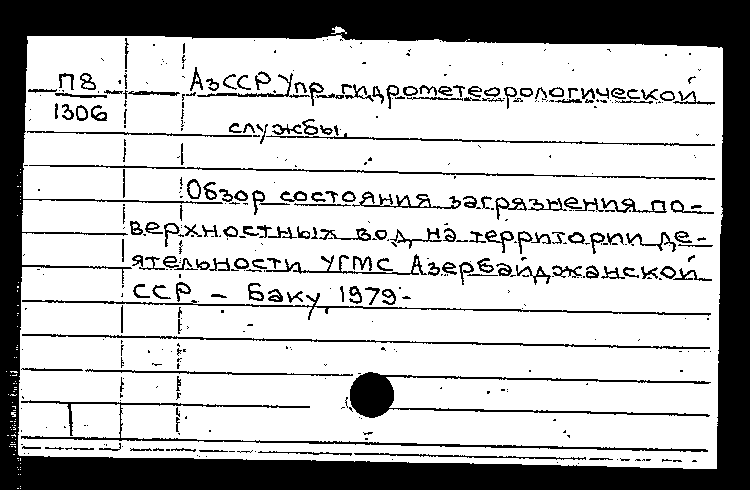 П8
1306
АзССР. Упр. гидрометеорологической
службы.
Обзор состояния загрязнения по-
верхностных вод на территории де-
ятельности УГМС Азербайджанской
ССР. – Баку, 1979-